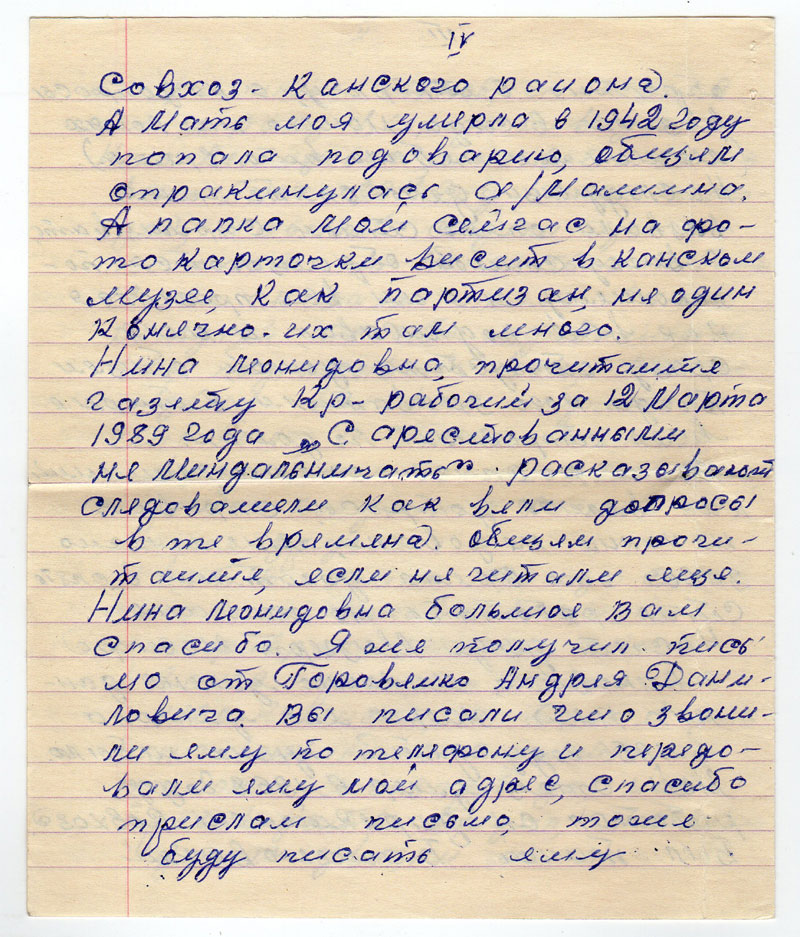 IV
Совхоз- Канского района.
А Мать моя умерла в 1942 году
попала под оварию, общем
отракинулась а/Машина.
А папка Мой сейчас на фо-
то карточки висит в Канском
музее, Как партизан, ня один
Конячно. их там много.
Нина Леонидовна, прочитаитя
газетту Кр- рабочий за 12 Марта
1989 года „С арестованными
ня Миндальничать". Расказывают
следователи Как вели допросы
в те времяна. общем прочи-
таитя, если ня читали ящя.
Нина Леонидовна большоя Вам
спасибо. Я жя получил пись-
мо от Горовянко Андрея Дани-
ловича. Вы писали что звони-
ли яму по теляфону и перядо-
вали яму мой адряс, спасибо
прислал письмо, тоже
буду писать яму